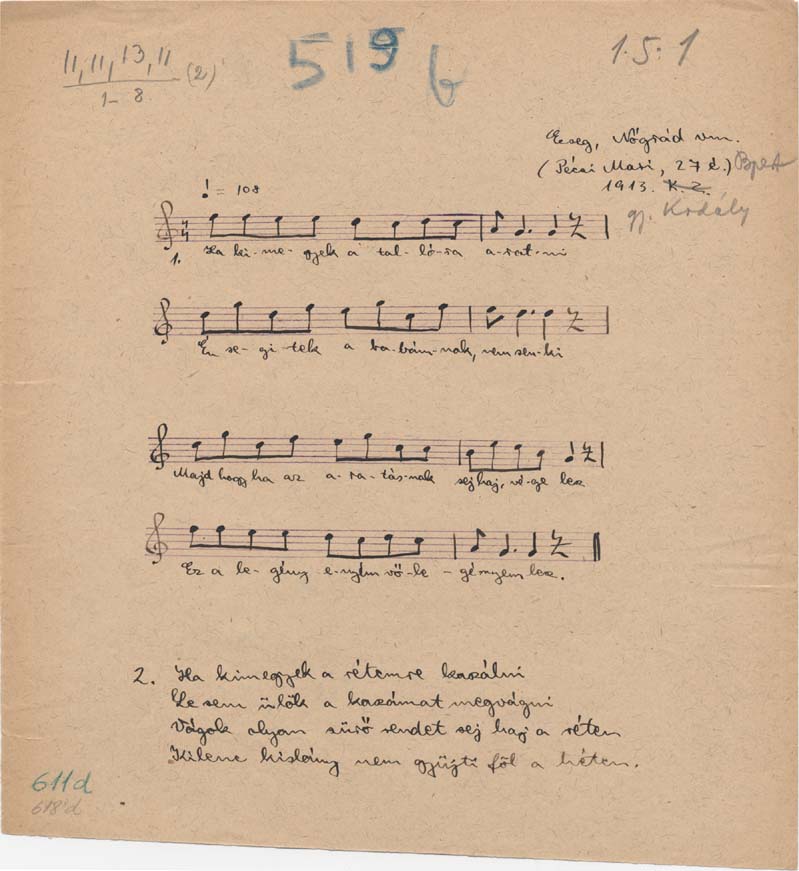 11, 11, 13, 11 (2)
1-8
519 b
1.5:1
Ecseg, Nógrád vm.
(Pécsi Mari, 27 é.) BpEA
1913. K.Z.
gj. Kodály
♩ = 108
1. Ha ki-me-gyek a tal-ló-ra a-rat-ni
Én se-gi-tek a ba-bám-nak, nem sen-ki
Majd hogy ha az a-ra-tás-nak sej haj, vé-ge lesz
Ez a le-gény e-nyém vő-le-gényem lesz.
2. Ha kimegyek a rétemre kaszálni
Le sem ülök a kaszámat megvágni
Vágok olyan sürő rendet sej haj a réten
Kilenc kislány nem gyüjti föl a héten.
611d
618'd